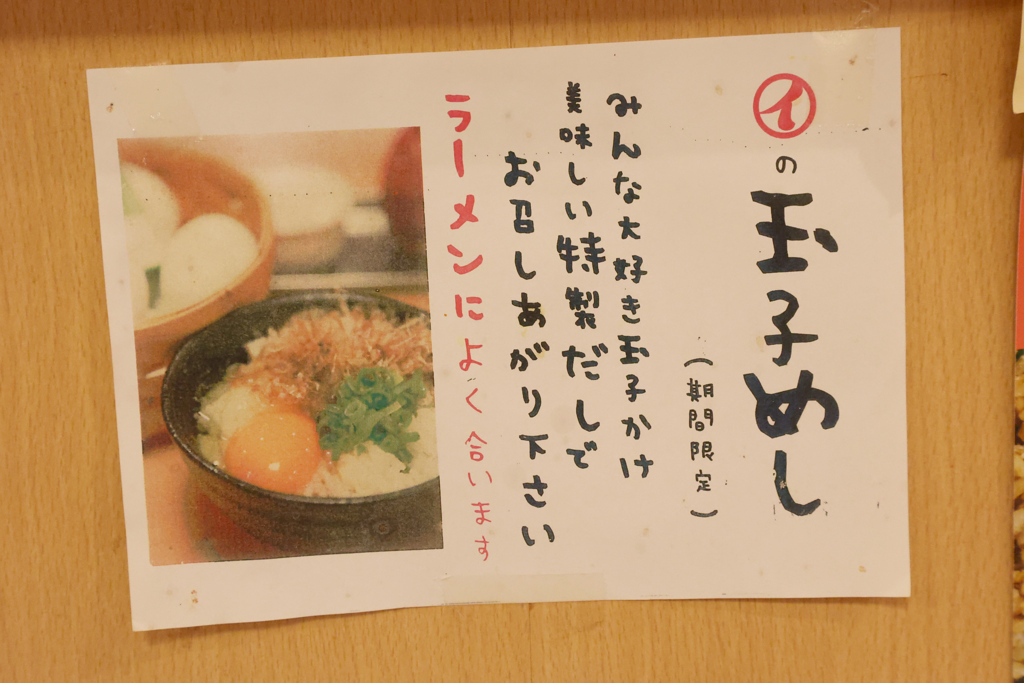 ㋑の玉子めし
(期間限定)
みんな大好き玉子かけ
美味しい特製だしで
お召しあがり下さい
ラーメンによく合います